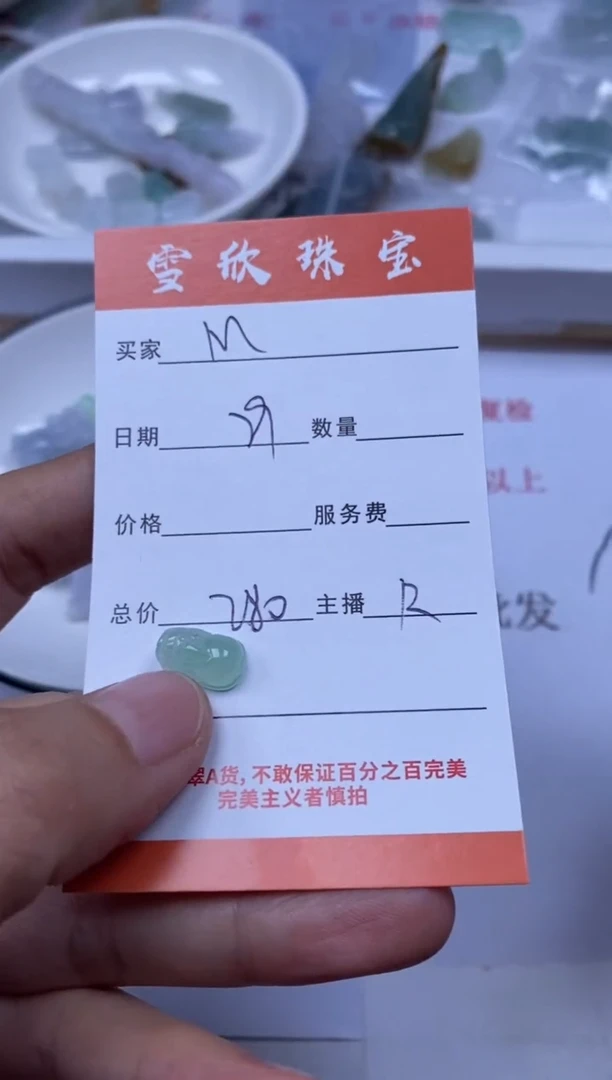 雪欣珠宝
买家 M
日期 数量
价格 服务费
总价 280 主播 R
翠A货, 不敢保证百分之百完美
完美主义者慎拍
复检
以上
批发